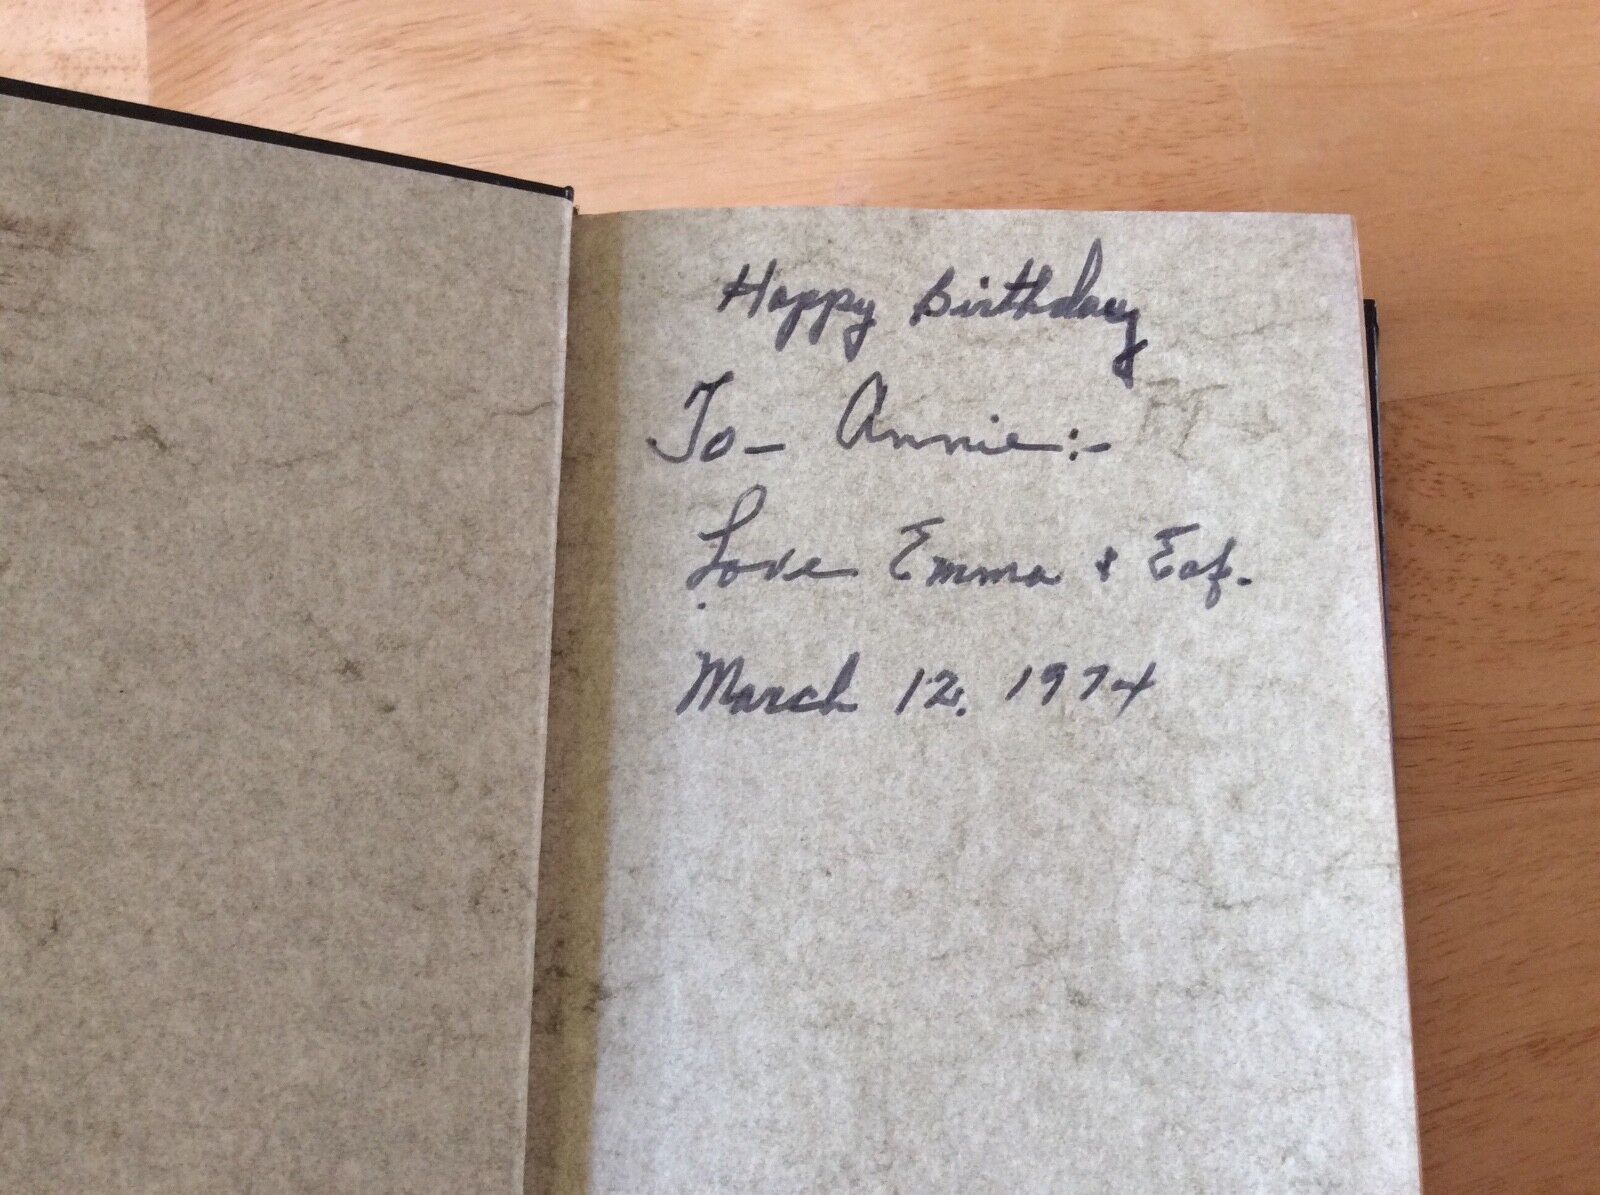 Happy Birthday
To- Annie:-
Love Emma & Eaf.
March 12, 1974